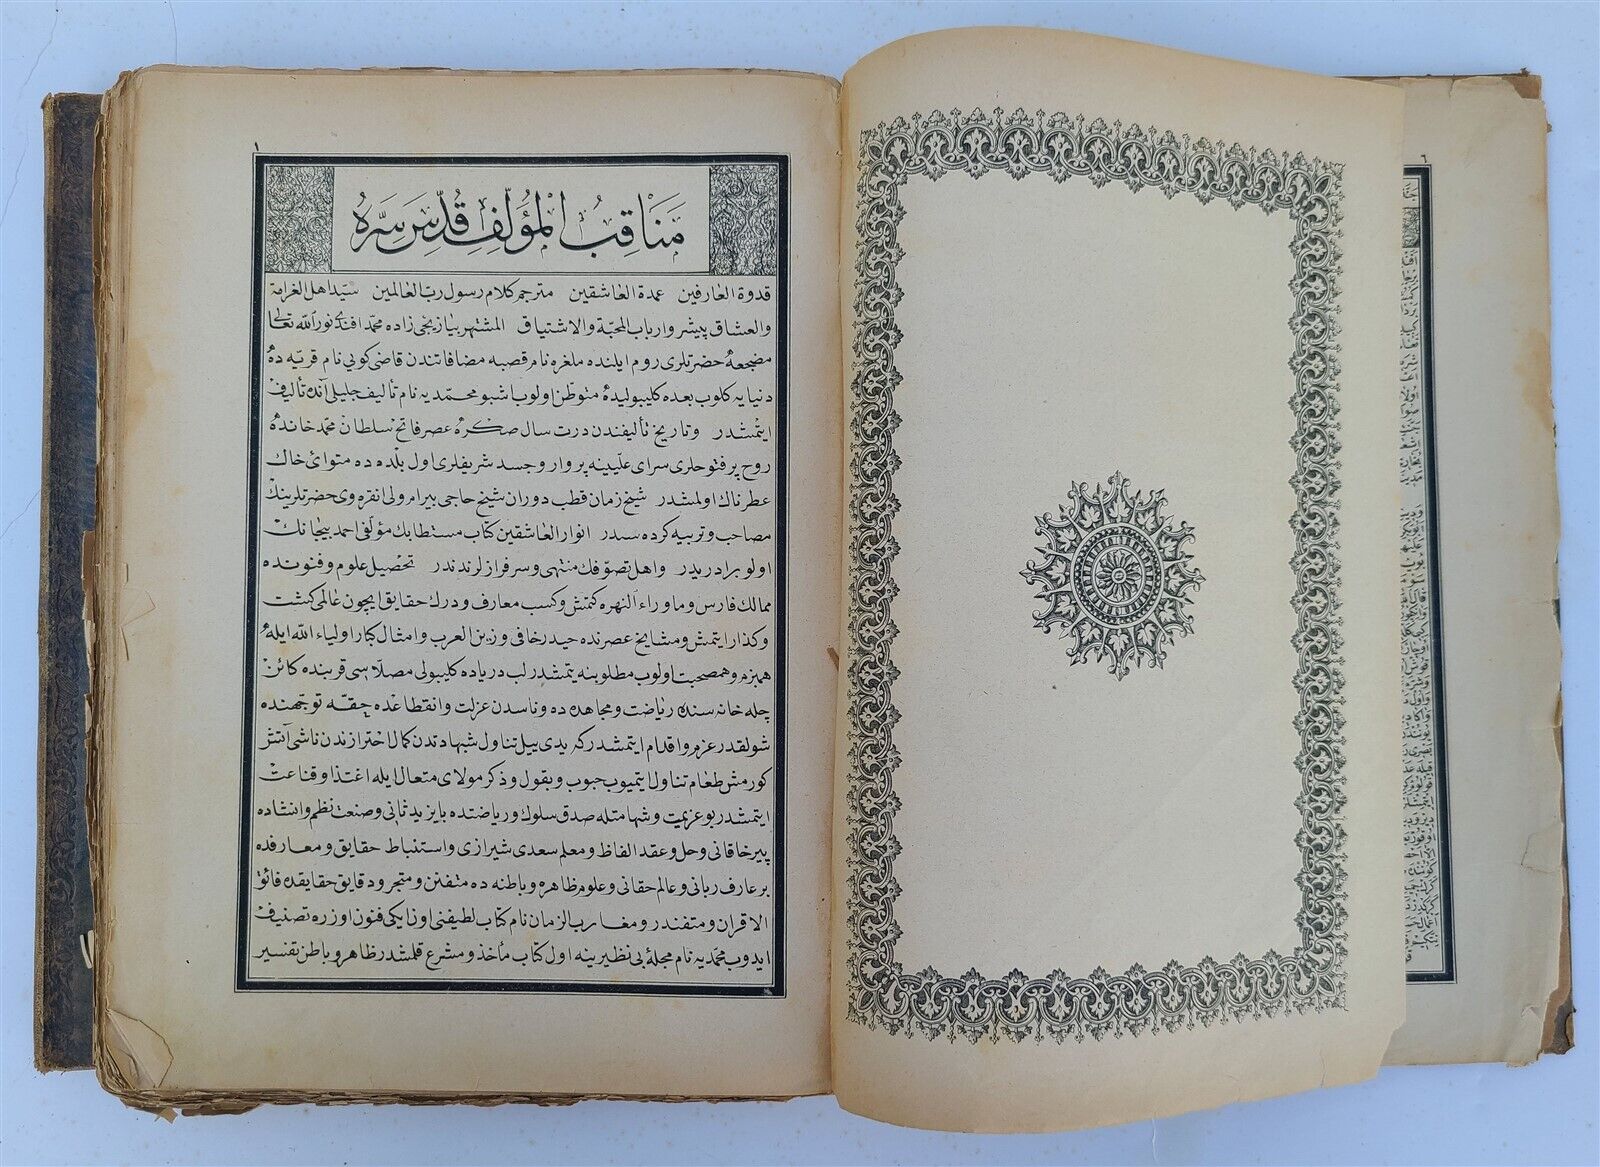 ١
مَنَاقِبُ الْمُؤَلِّفِ قُدِّسَ سِرُّهُ
قدوة العارفين عمدة العاشقين مترجم كلام رسول رب العالمين سيد اهل الغرامة
والعشاق پيشرو ارباب المحبة والاشتياق المشتهر بيازيجى زاده محمد افندى نور الله تعالى
مضجعه حضرتلرى روم ايلنده ملغره نام قصبه مضافاتندن قاضى كويى نام قريه ده
دنيايه كلوب بعده كليبوليده متوطن اولوب اشبو محمديه نام تأليف جليلى آنده تأليف
ايتمشدر و تاريخ تأليفندن درت سال صكره عصر فاتح سلطان محمد خانده
روح پر فتوحلرى سراى عليينه پروار و جسد شريفلرى اول بلده ده متوائ خاك
عطرناك اولمشدر شيخ زمان قطب دوران شيخ حاجى بيرام ولى انقره وى حضرتلرينك
مصاحب و تربيه كرده سيدر انوار العاشقين كتاب مستطابك مؤلفى احمد بيجانك
اولو برادريدر و اهل تصوفك منتهى و سرفرازلرندندر تحصيل علوم و فنونده
ممالك فارس و ما وراء النهره كتمش و كسب معارف و درك حقايق ايچون عالمى كشت
و كذار ايتمش و مشايخ عصرنده حيدر خافى و زين العرب و امثال كبار اولياء الله ايله
همبزم و همصحبت اولوب مطلوبنه يتمشدر لب درياده كليبولى مصلاسى قربنده كائن
چله خانه سنده رياضت و مجاهده ده و ناسدن عزلت و انقطاعده حقه توجهنده
شولقدر عزم و اقدام ايتمشدر كه يدى ييل تناول شبهادتدن كمال احترازندن ناشى آتش
كورمش طعام تناول ايتميوب حبوب و بقول و ذكر مولاى متعال ايله اغتذا و قناعت
ايتمشدر بو عزيمت و شهامتله صدق سلوك و رياضتده بايزيد ثانى و صنعت نظم و انشاده
پير خاقانى و حل و عقد الفاظ و معلم سعدى شيرازى و استنباط حقايق و معارفده
بر عارف ربانى و عالم حقانى و علوم ظاهره و باطنه ده متفنن و متجر و دقايق حقايقده فائق
الاقران و متفندر و مغارب الزمان نام كتاب لطيفنى اون ايكى فنون اوزره تصنيف
ايدوب محمديه نام مجله بى نظيرينه اول كتاب مأخذ و مشرع قلمشدر ظاهر و باطن تفسير
٦